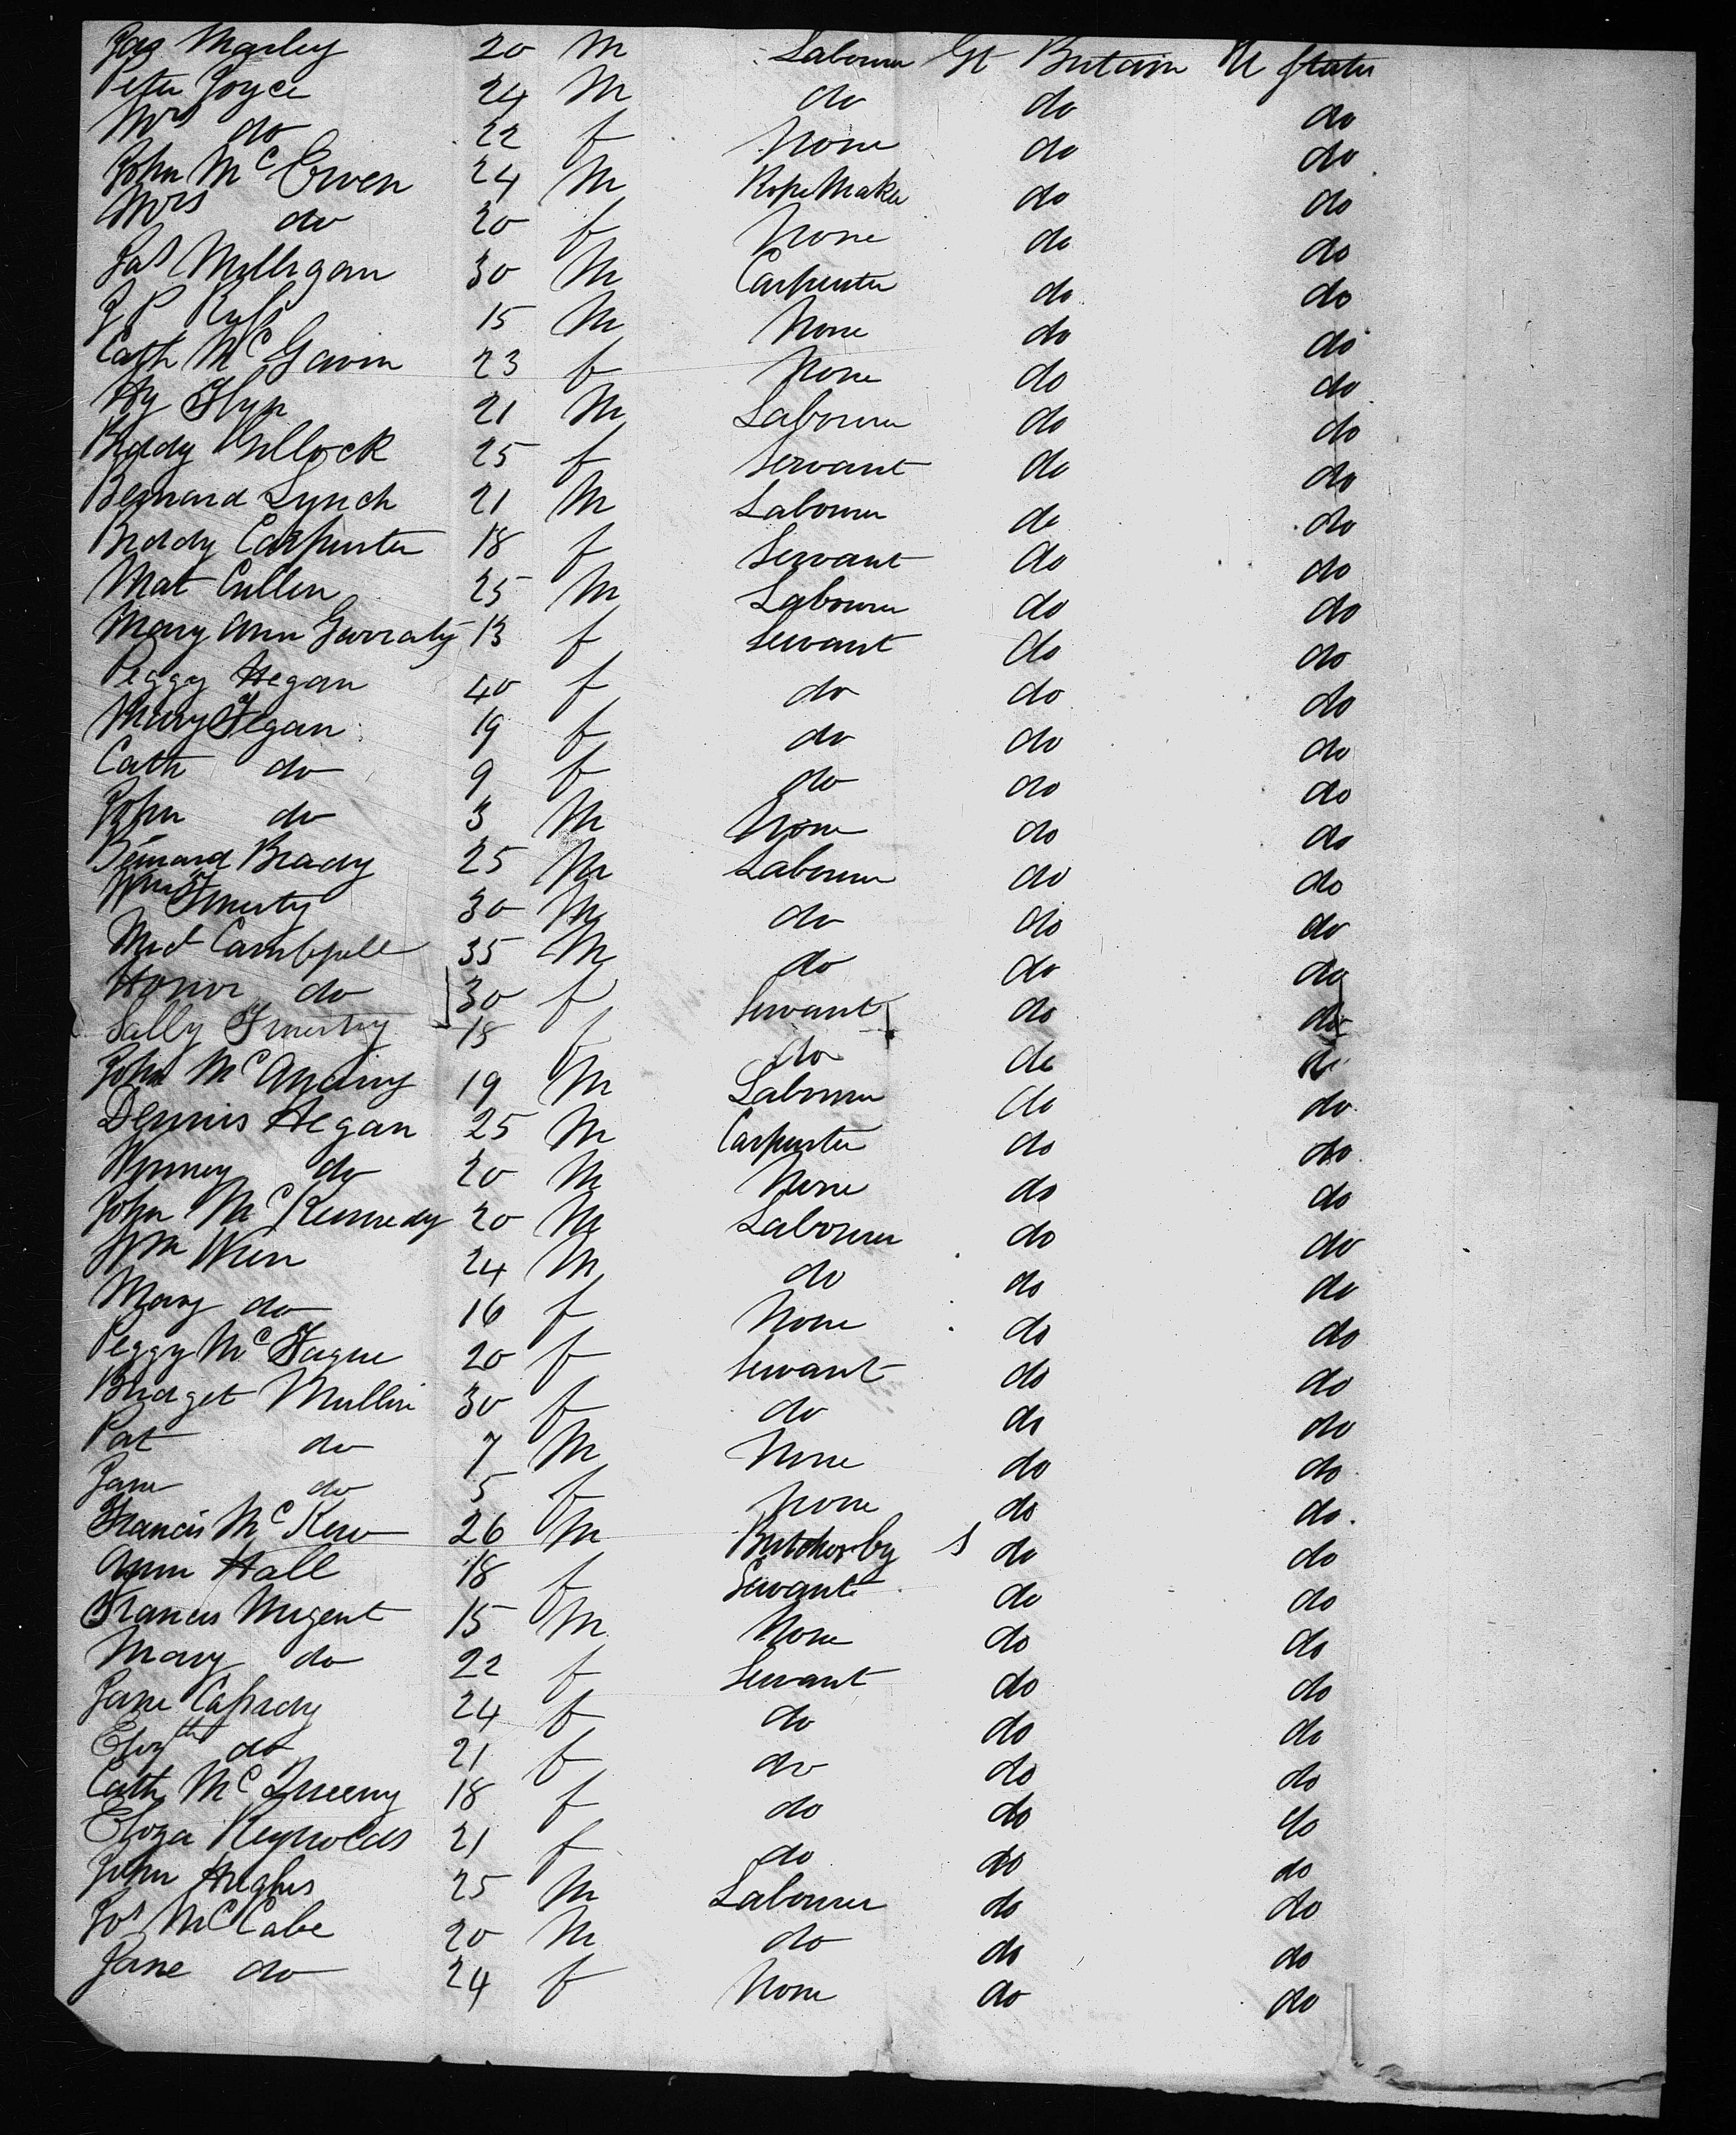 Jas Marley 20 M Labourer Gt Britain U States
Peter Joyce 24 M do do do
Mrs do 22 f None do do
John McEwen 24 M Rope Maker do do
Mrs do 20 f None do do
Jas Milligan 30 M Carpenter do do
J P 15 M None do do
Cath McGavin 23 f None do do
Hy Flyn 21 M Labourer do do
Biddy 25 f Servant do do
Bernard Lynch 21 M Labourer do do
Biddy Carpenter 18 f Servant do do
Mat Cullen 25 M Labourer do do
Mary Ann Garraty 13 f Servant do do
Peggy Hegan 40 f do do do
Mary Fegan 19 f do do do
Cath do 9 f do do do
John do 3 M None do do
Bernard Brady 25 M Labourer do do
Wm 30 M do do do
Mic Cambpell 35 M do do do
Honor do 30 f Servant do do
Sally 18 f do do do
John 19 M Labourer do do
Dennis Hegan 25 M Carpenter do do
Winney do 20 M None do do
John McKennedy 20 M Labourer do do
Wm 24 M do do do
Mary do 16 f None do do
Peggy McTague 20 f Servant do do
Bridget Mullin 30 f do do do
Pat do 7 M None do do
Jane do 5 f None do do
Francis McKew 26 M Butcher by s do do
Ann Hall 18 f Servant do do
Francis Nugent 15 M None do do
Mary do 22 f Servant do do
Jane Cassady 24 f do do do
Elizth do 21 f do do do
Cath 18 f do do do
Eliza Reynolds 21 f do do do
John Hughes 25 M Labourer do do
Jos McCabe 20 M do do do
Jane do 24 f None do do